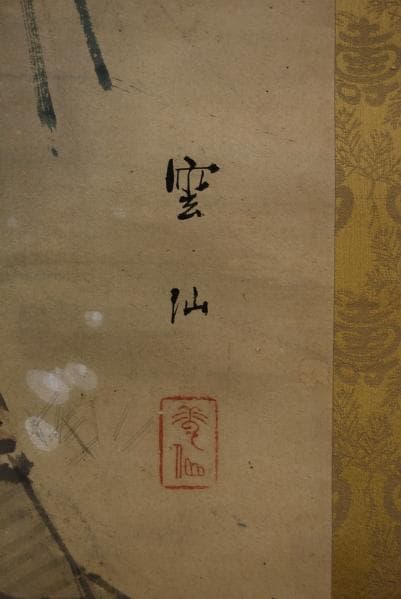 雲
仙
雲仙